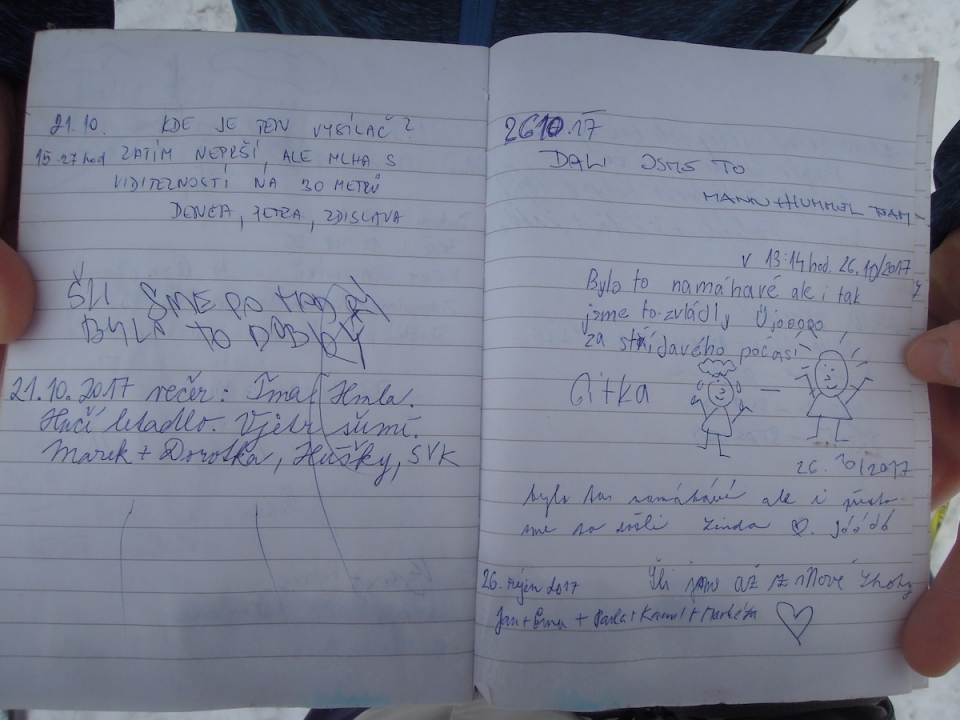 21.10. KDE JE TEN VYSÍLAČ?
15.27 hod ZATÍM NEPRŠÍ, ALE MLHA S
VIDITELNOSTÍ NA 30 METRŮ
PETRA, ZDISLAVA
ŠLI SME PO
BYLO TO
21.10.2017 večer: Tma. Hmla.
Hučí lietadlo. Vjetr šumí.
Marek + Dorotka, Hušky, SVK
26.10.17
DALI JSME TO
MANN+HUMMEL TEAM
v 13:14 hod. 26.10/2017
Bylo to namáhavé ale i tak
jsme to zvládly Újooooo
za střídavého počasí
Gitka
26.10/2017
bylo to namáhavé ale i přesto
sme to došli Linda ♡.
26. říjen 2017 Šli jsme až z Nové
Jan + + Pavla + Kamil + Markéta ♡